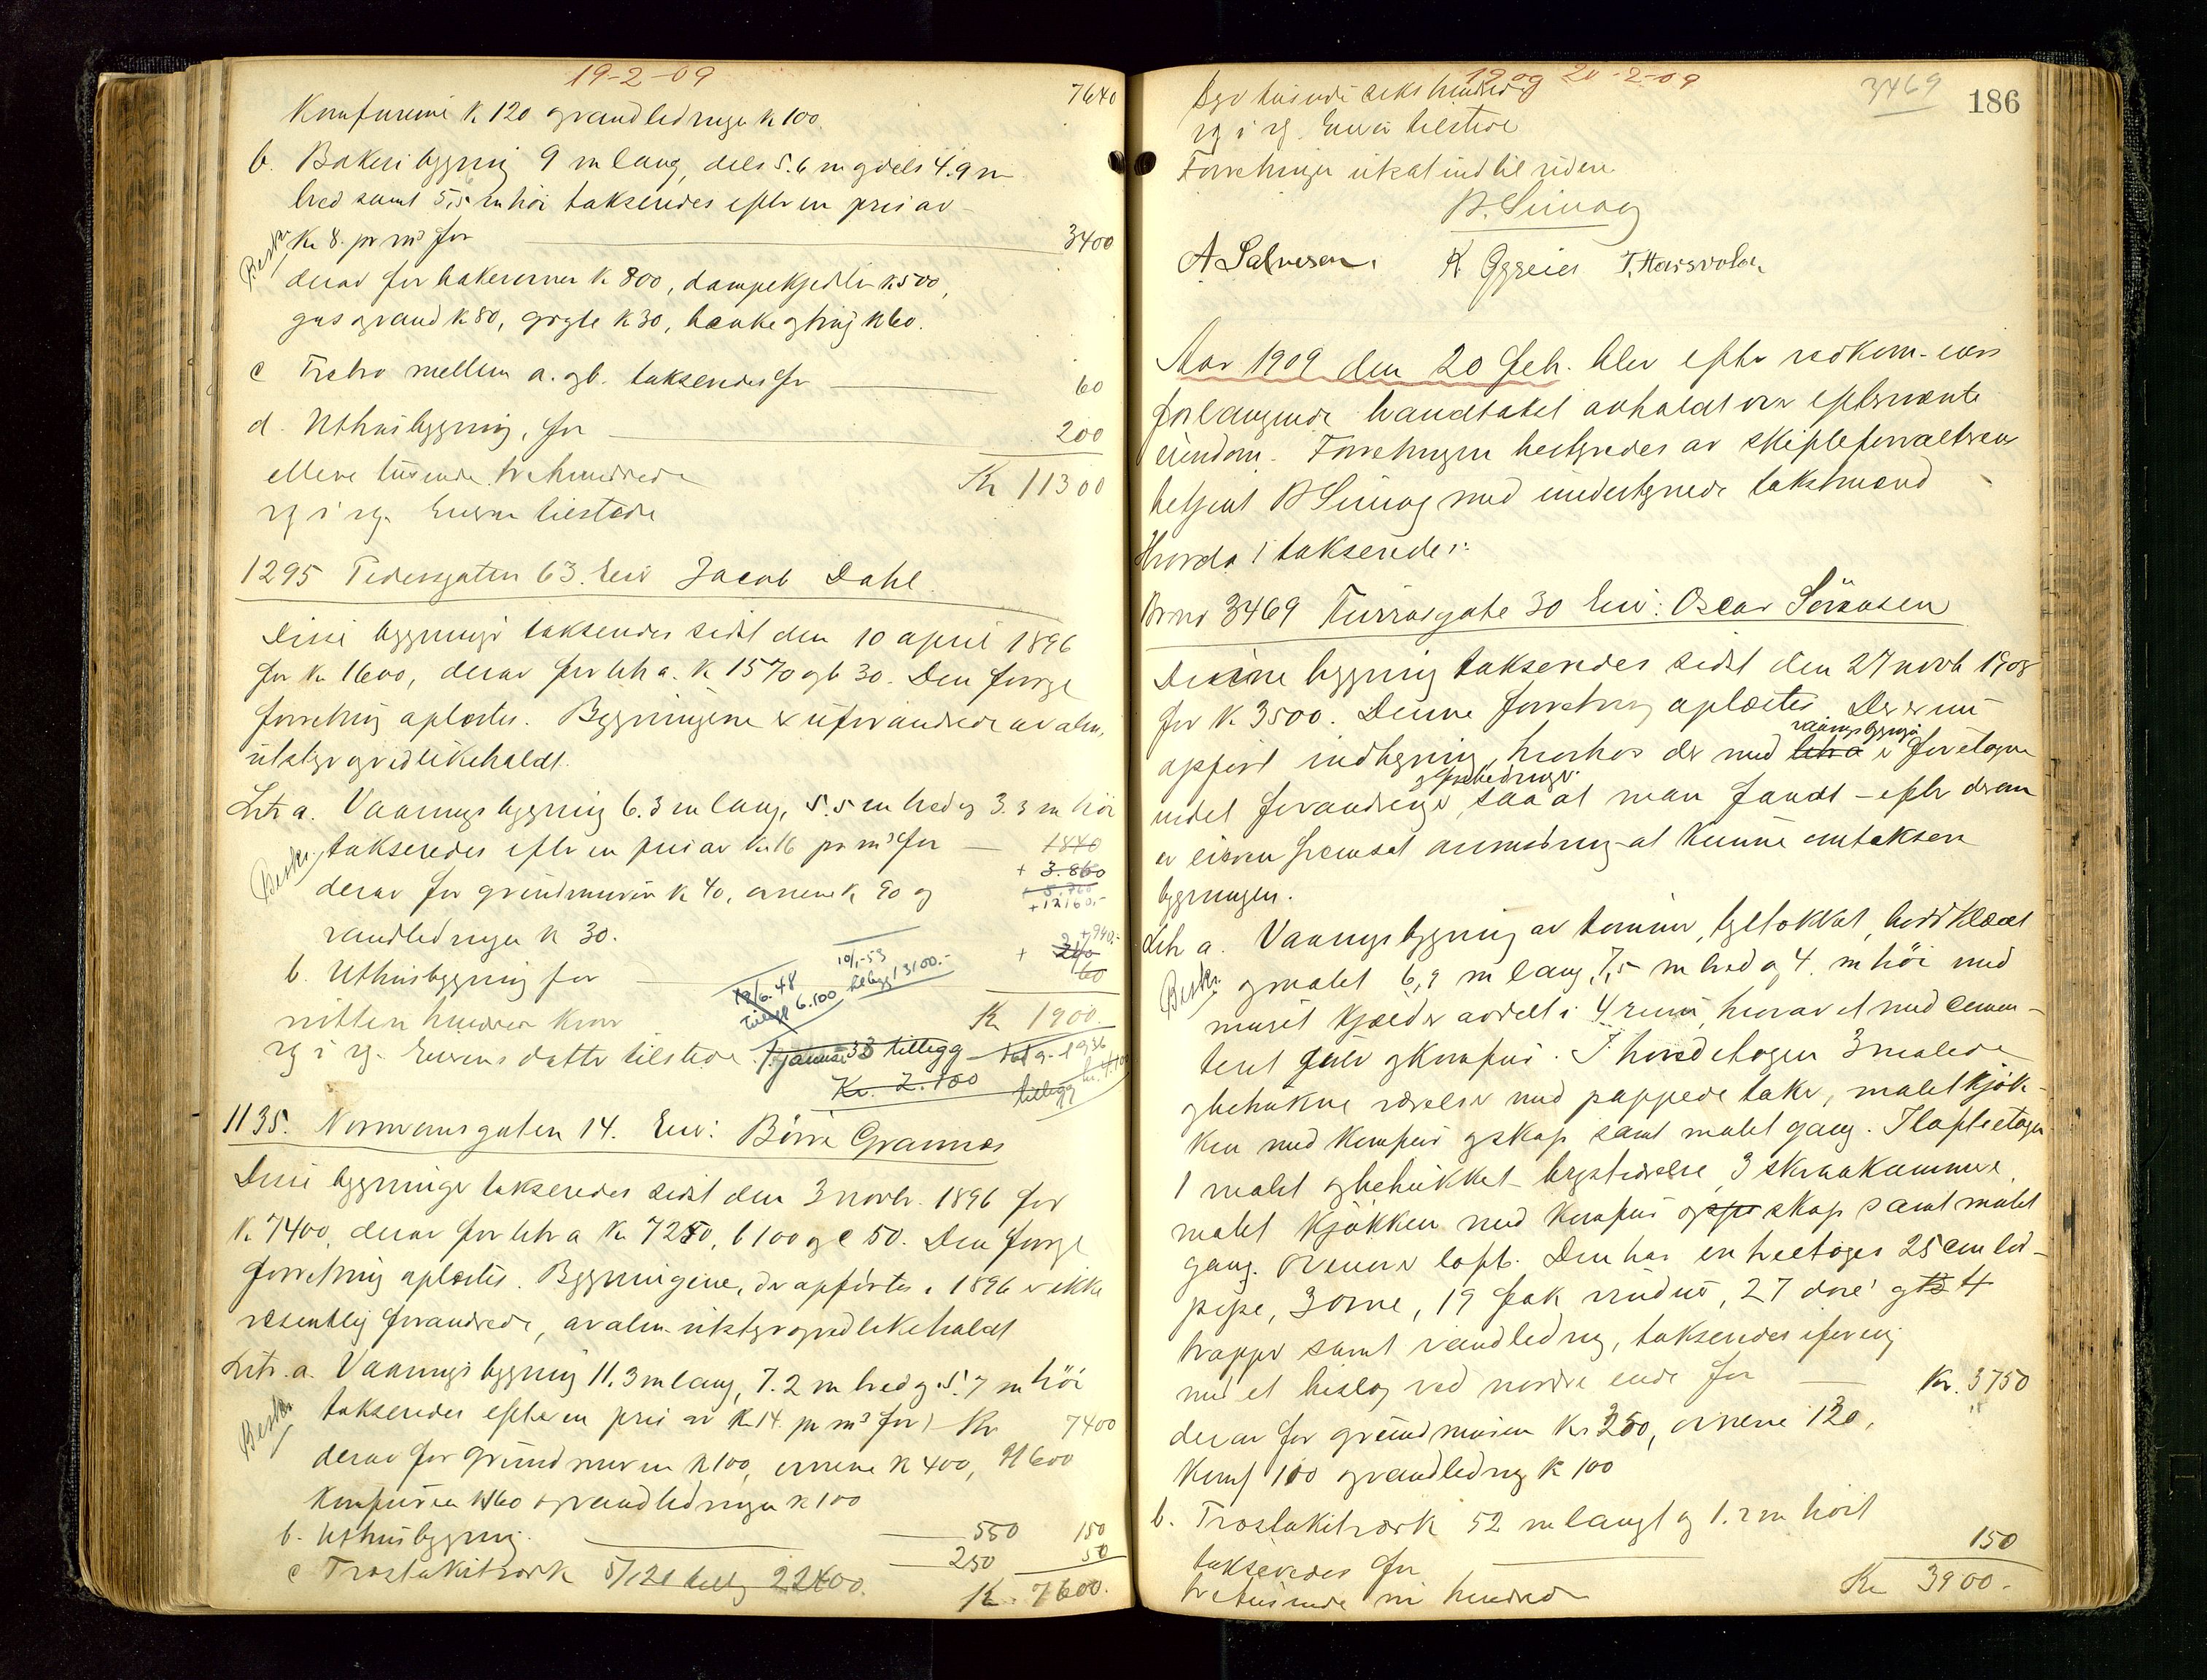 19-2-09
7640
Komfurerne k 120 og vandledningen k 100.
b. Bakeribygning 9 m lang, dels 5.6 m og dels 4.9 m
bred samt 5,5 m høi takseredes efter en pris av
Kr 8. pr m³ for 3400
Beskr.
derav for bakerovnen k 800, dampekjedler k 500,
gas og vand k 80, k 30, bænke og k 60.
c Trebro mellem a. og b. takseredes for 60
d. Uthusbygning, for 200
elleve tusinde trehundrede Kr 11300
rg i rg. Eieren tilstede
1295 Pedersgaten 63. Eier Jacob Dahl
Disse bygninger takseredes sidst den 10 april 1896
for kr 1600, derav for litr a. k 1570 og b 30. Den forrige
forretning oplæstes. Bygningene er uforandrede av alm.
utstyr og vedlikeholdt.
Litr a. Vaaningsbygning 6.3 m lang, 5.5 m bred og 3.3 m høi
takseredes efter en pris av kr 16 pr m³ for 1840
Beskr.
+ 3.860
derav for grundmuren k 40, ovnene k 90 og
+ 12160.-
vandledningen k 30.
+ 940.-
+ 240
b. Uthusbygning for 60
10/1-53 tilbygg 13100.-
19/6.48 Tillegg 6.100
nitten hundrede kroner Kr 1900.
rg i rg. Eierens datter tilstede. 1. januar 33 tillegg
Kr. 2.100
tillegg
1135. Normansgaten 14. Eier: Börre Grannes
Disse bygninger takseredes sidst den 3 novbr. 1896 for
k 7400, derav for litr a kr 7250, b 100 og c 50. Den forrige
forretning oplæstes. Bygningene, der opførtes i 1896 er ikke
væsentlig forandrede, av alm. utstyr og vedlikeholdt
Litr. a. Vaaningsbygning 11.3 m lang, 7.2 m bred og 5.7 m høi
takseredes efter en pris av kr 14. pr m³ for Kr 7400
Beskr.
derav for grundmuren k 100, ovnene k 400, 21600
komfuren k 60 og vandledningen k 100
b. Uthusbygning. 550 150
c Træstakitværk 5/1 21 tillegg 22400. 250 50
Kr. 7600.
19 og 20-2-09
3469
186
syv tusinde seks hundrede
rg i rg. Eieren tilstede
Forretningen utsat indtil videre
B. Simog
A Salvesen. K Ggreier T. Haarsvolen
Aar 1909 den 20 Feb. blev efter vedkom. eiers
forlangende brandtakst avholdt over eftermeldte
eiendom. Forretningen bestyredes av skifteforvalteren
betjent B Simog med undertegnede takstmænd
Hvorda i takseredes:
Brnr 3469 Kirrasgate 30 Eier: Oscar Sörensen
Denne bygning takseredes sidst den 27 novb 1908
for k 3500. Denne forretning oplæstes. Der er nu
opført indbygning, hvorhos der med litr a vaaningsbygn. er foretagne
endel forandringer og forbedringer. saa at man fandt - efter derom
er eieren fremsat anmodning at kunne omtaksere
bygningen.
Litr a. Vaaningsbygning av tømmer, tegltækket, bordklædt
Beskr.
og malet 6,9 m lang, 7,5 m bred og 4. m høi med
muret kjælder avdelt i 4 rum, hvorav et med cemen-
teret gulv og komfur. I hovedetagen 3 malede
og betrukne værelser med pappede taker, malet kjøk-
ken med komfur og skap samt malet gang. I loftsetagen
1 malet og betrukket brystværelse, 3 skraakammere
malet kjøkken med komfur og skap samt malet
gang. Øvenover loft. Den har en treetages 25 cm lød-
pipe, 3 ovne, 19 fak vinduer, 27 døre og 4
trapper samt vandledning, takseredes iforening
med et bislag ved nordre ende for Kr. 3750
derav for grundmuren kr 350, ovnene 120,
komf 100 og vandledning k 100
b. Træstakitværk 52 m langt og 1.2 m høit
takseredes for 150
tretusinde ni hundrede Kr 3900.